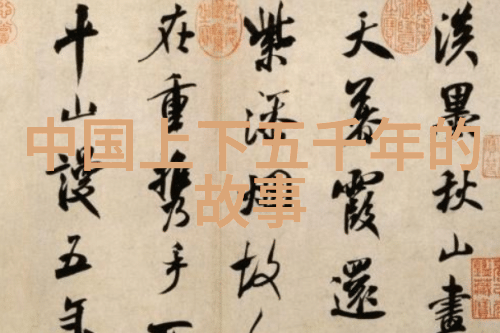 中国上下五千年的
故事
淡墨秋山畫
天暮霞還
紫添烟故
在重携手
平山謾五年